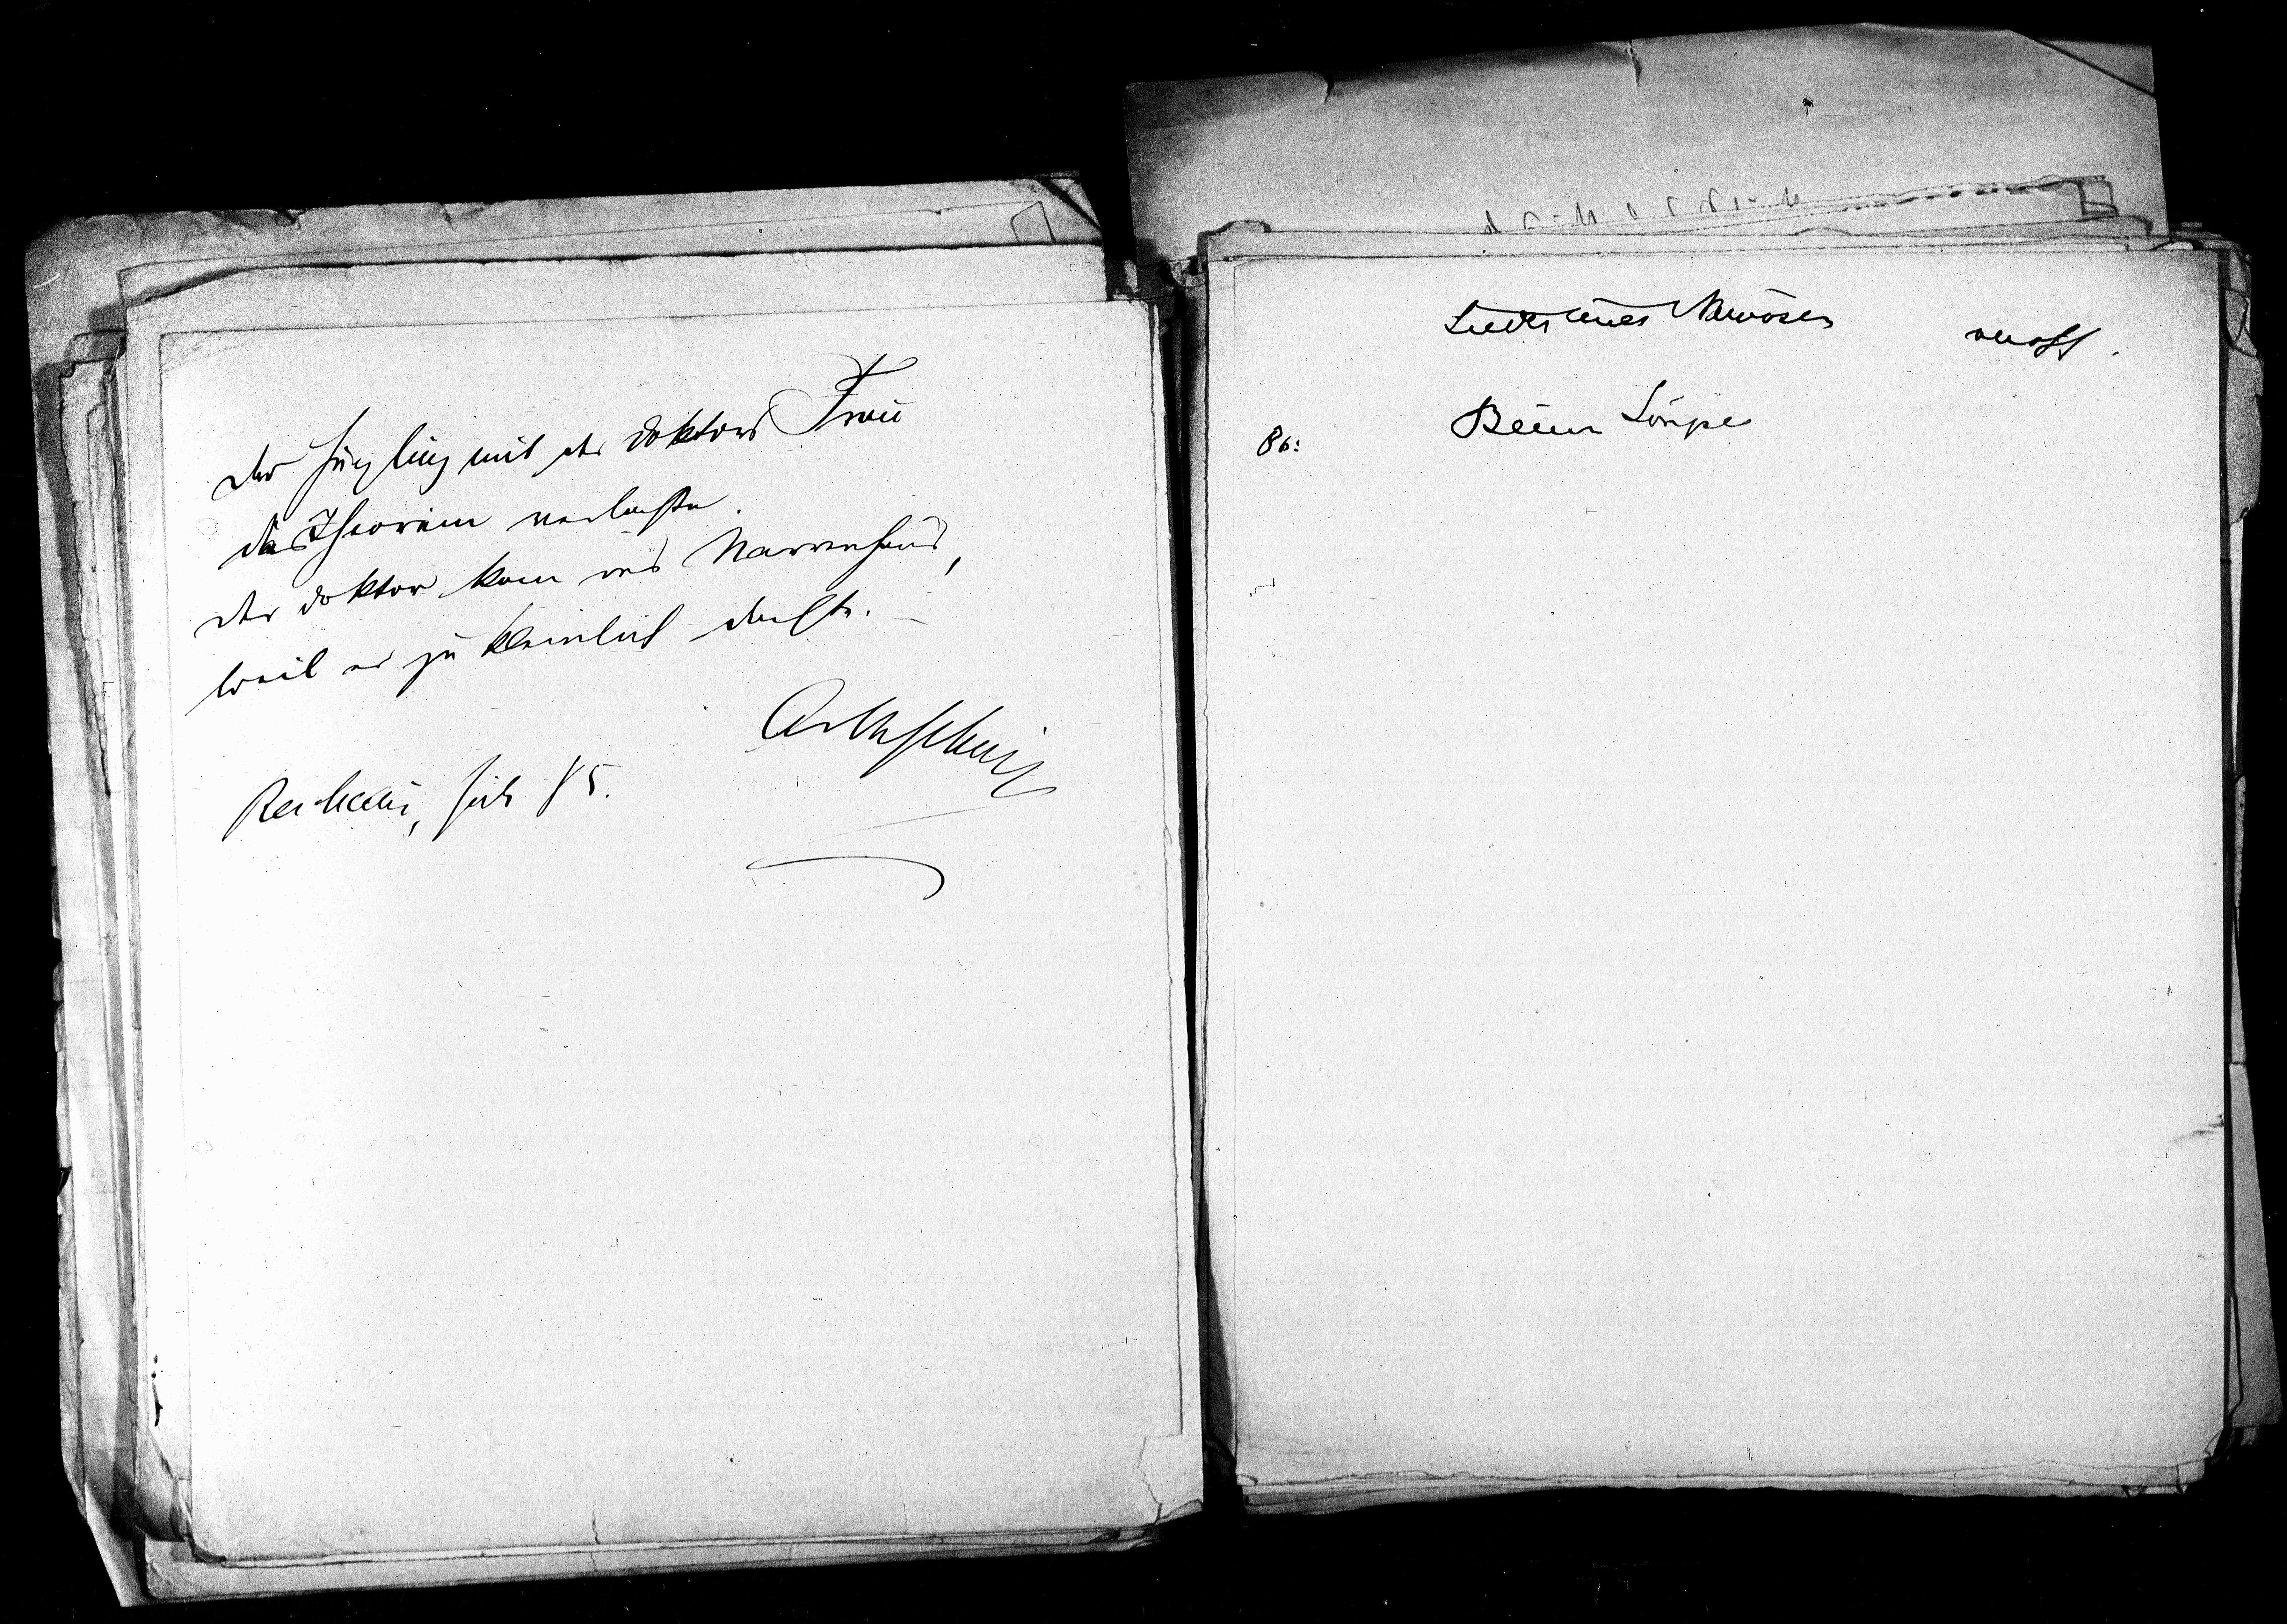 der Jüngling mit der Doktors Frau
das Theorem verlachte.
der Doktor kam ins Narrenhaus,
weil er zu kleinlich dachte.
ArthSchnitz
Reichenau, Juli 85.
Lieder eines Nervösen
86:
Beim Souper